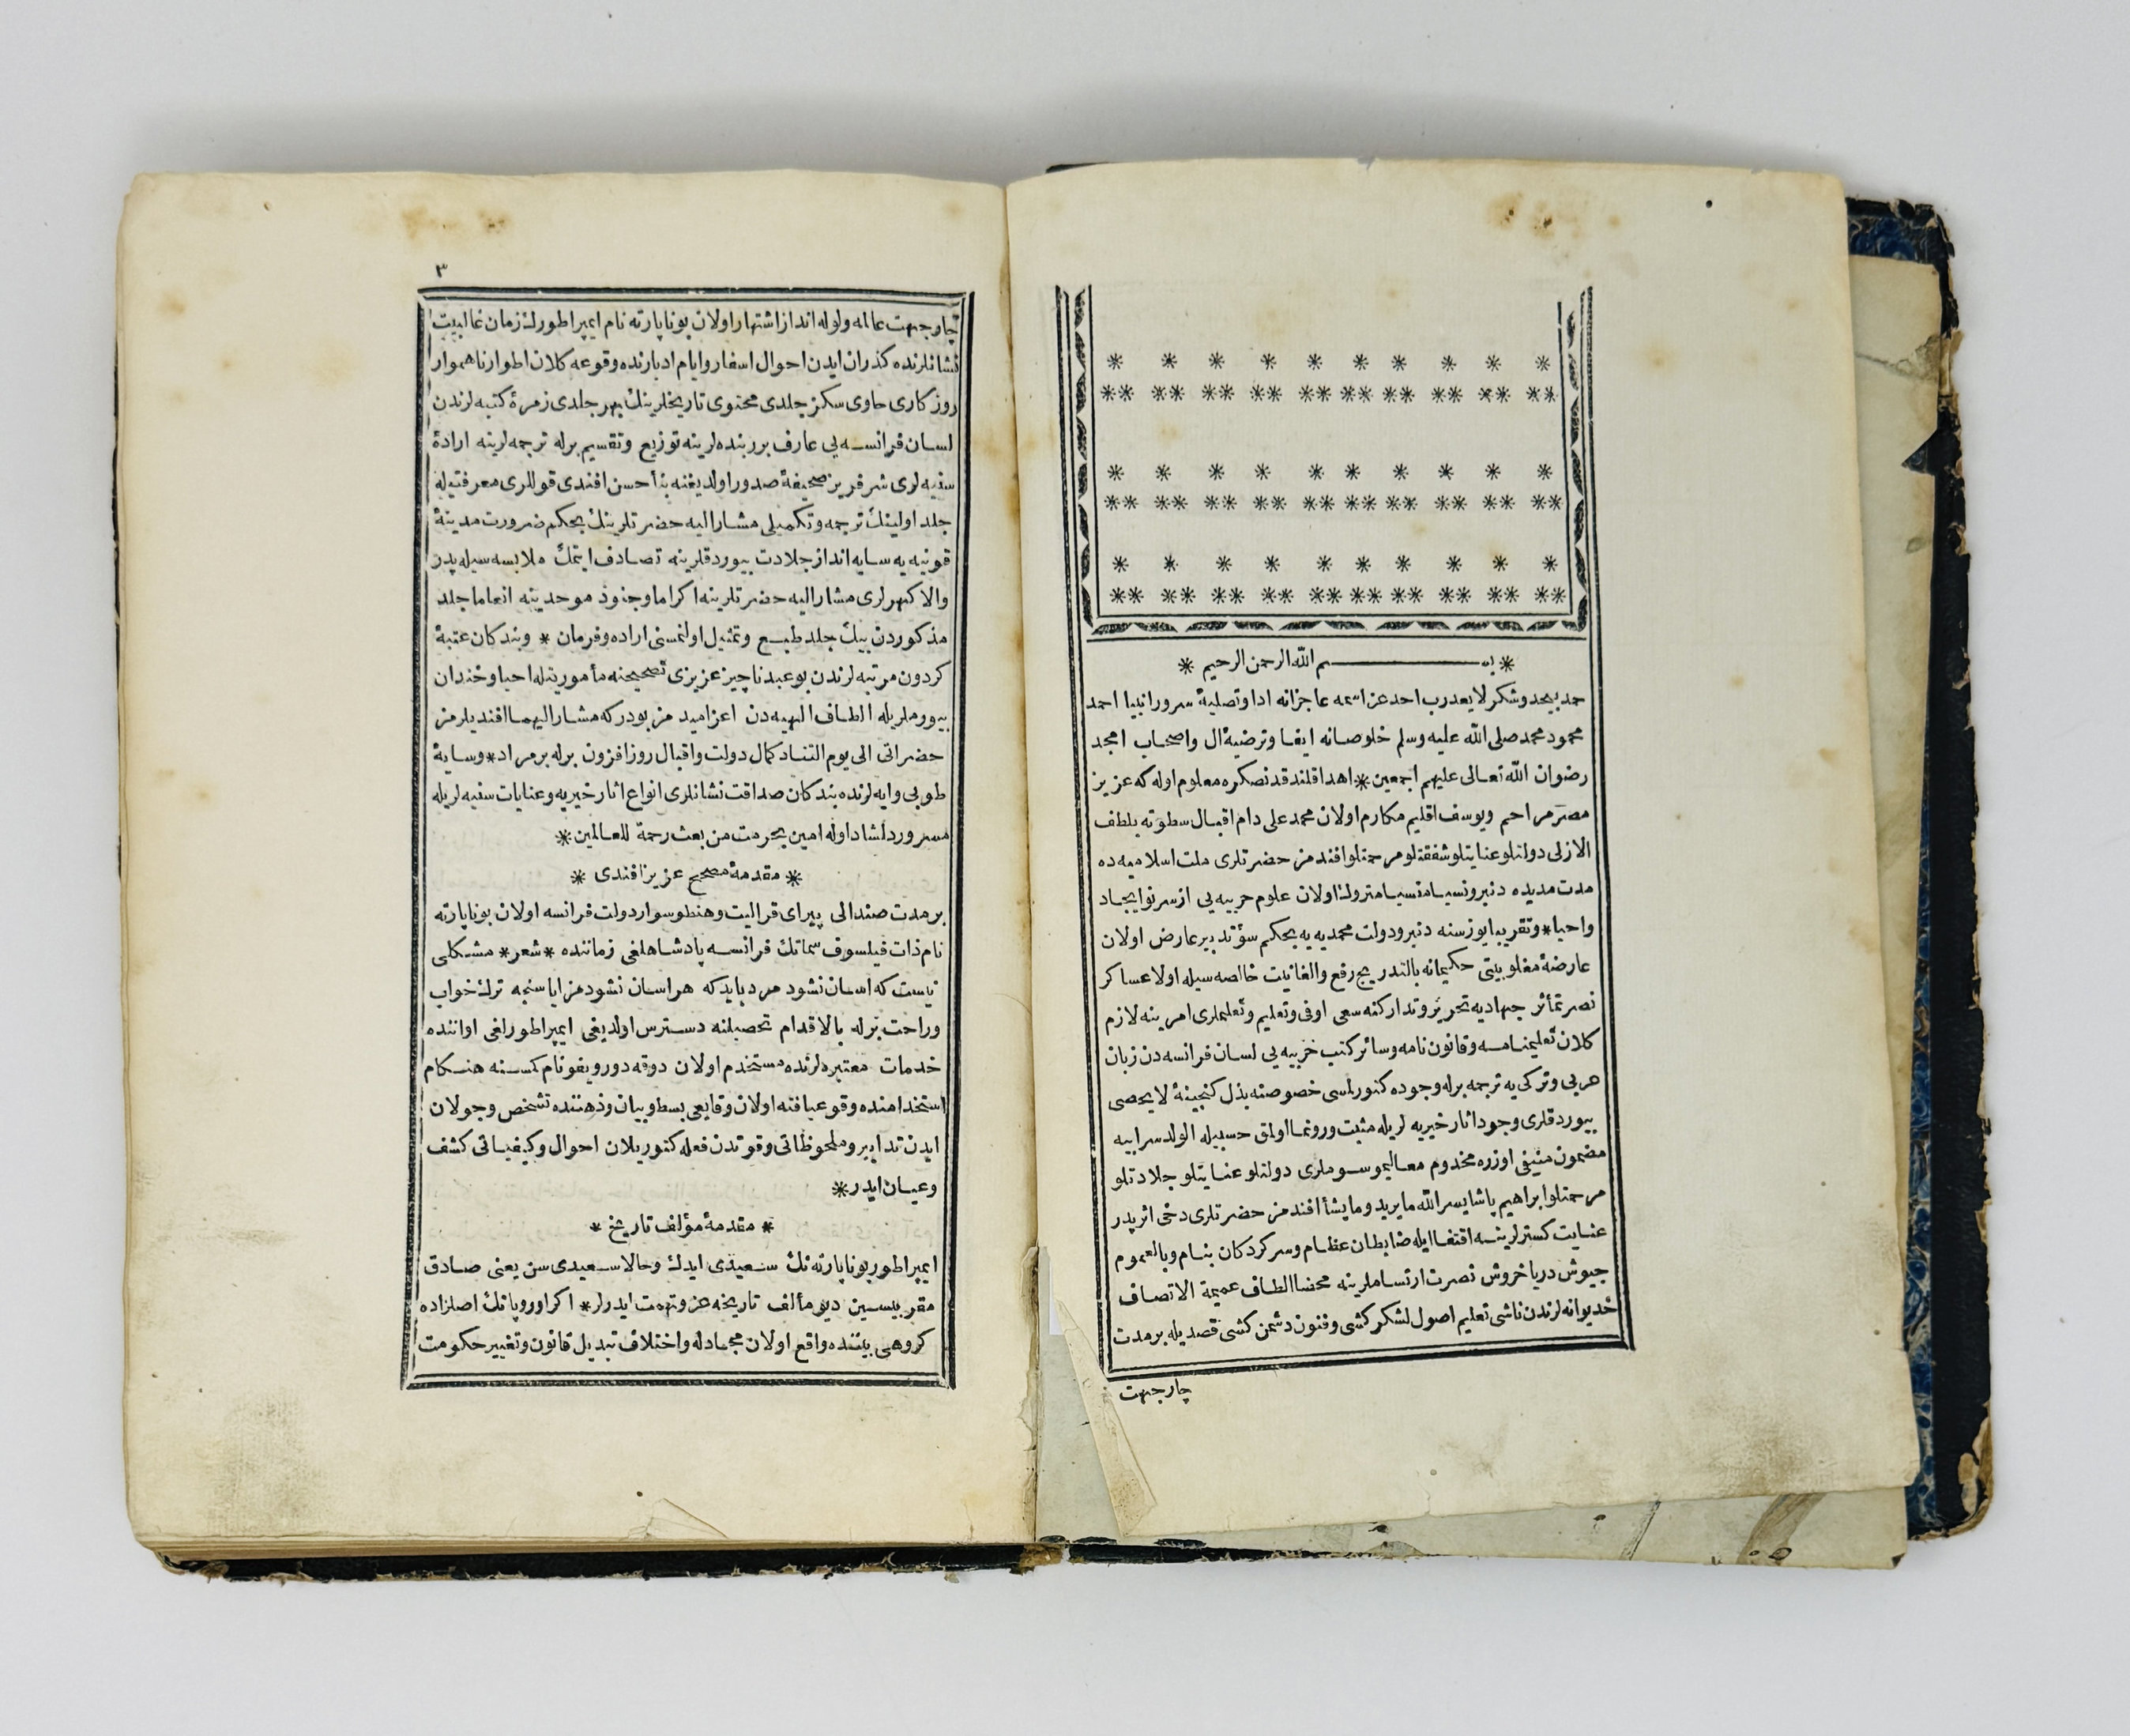 * بسم الله الرحمن الرحيم *
حمد بيحد وشكر لا يعد رب احد عز اسمه عاجزانه ادا وتصلیهٔ سرور انبیا احمد
محمود محمد صلى الله عليه وسلم خلوصانه ايفا وترضیهٔ ال واصحاب امجد
رضوان الله تعالى عليهم اجمعين * اهدا قلندقدنصكره معلوم اوله كه عزیز
مصر مراحم ويوسف اقليم مكارم اولان محمد على دام اقبال سطوته بلطف
الازلى دولتلو عنايتلو شفقتلو مرحمتلو افندمز حضرتلرى ملت اسلاميه ده
مدت مديده دنبرو نسيا منسيا متروك اولان علوم حربيه يى ازسرنو ايجاد
واحيا * وتقريبا يوز سنه دنبرو دولت محمديه يه بحكم سؤ تدبير عارض اولان
عارضهٔ مغلوبيتى حكيمانه بالتدريج رفع والغا نيت خالصه سيله اولا عساكر
نصرتمأثر جهاديه تحرير وتداركنه سعى اوفى وتعليم وتعلملرى امرينه لازم
كلان تعليمنامه وقانون نامه وسائر كتب حربيه يى لسان فرانسه دن زبان
عربى وتركى يه ترجمه برله وجوده كتورلمسى خصوصنه بذل كنجينهٔ لا يحصى
بيوردقلرى وجود اثار خيريه لريله مثبت ورونما اولمق حسبيله الولد سر ابيه
مضمون منيفى اوزره مخدوم معاليموسوملرى دولتلو عنايتلو جلادتلو
مرحمتلو ابراهيم پاشا يسر الله ما يريد وما يشأ افندمز حضرتلرى دخى اثر پدر
عنايت كسترلرينه اقتفا ايله ضابطان عظام وسركردكان بنام وبالعموم
جيوش دريا خروش نصرت ارتساملرينه محضا الطاف عميمة الاتصاف
خديوانه لرندن ناشى تعليم اصول لشكركشى وفنون دشمن كشى قصديله بر مدت
چار جهت
٣
چار جهت عالمه ولوله انداز اشتهار اولان بوناپارته نام ايمپراطورك زمان غالبيت
نشانلرنده كذران ايدن احوال اسفار وايام ادبارنده وقوعه كلان اطوار ناهموار
روزكارى حاوى سكز جلدى محتوى تاريخلرينك بهر جلدى زمرهٔ كتبه لرندن
لسان فرانسه يى عارف برر بنده لرينه توزيع وتقسيم برله ترجمه لرينه ارادهٔ
سنيه لرى شرفريز صحيفهٔ صدور اولديغنه بنأ حسن افندى قوللرى معرفتيله
جلد اولينك ترجمه وتكميلى مشاراليه حضرتلرينك بحكم ضرورت مدينهٔ
قونيه يه سايه انداز جلادت بيوردقلرينه تصادف ايتمك ملابسه سيله پدر
والا كهرلرى مشاراليه حضرتلرينه اكراما وجنود موحدينه انعاما جلد
مذكوردن بيك جلد طبع وتمثيل اولنمسنى اراده وفرمان * وبندكان عتبهٔ
كردون مرتبه لرندن بو عبد ناچيز عزيزى تصحيحنه مأموريتله احيا وخندان
بيورملريله الطاف الهيه دن اعز اميد مز بودركه مشاراليهما افنديلرمز
حضراتى الى يوم التناد كمال دولت واقبال روز افزون برله بر مراد * وسايهٔ
طوبى وايه لرنده بندكان صداقت نشانلرى انواع اثار خيريه وعنايات سنيه لريله
مسرور ودلشاد اوله امين بحرمت من بعث رحمة للعالمين *
* مقدمهٔ مصحح عزيز افندى *
بر مدت صندالى پيراى قراليت وهنطو سوار دولت فرانسه اولان بوناپارته
نام ذات فيلسوف سماتك فرانسه پادشاهلغى زماننده * شعر * مشكلى
نيست كه اسان نشود مرد بايد كه هراسان نشود مزاياسنجه ترك خواب
وراحت برله بالاقدام تحصيلنه دسترس اولديغى ايمپراطورلغى اواننده
خدمات معتبره لرنده مستخدم اولان دوقه دو رويغو نام كسنه هنكام
استخدامنده وقوعيافته اولان وقايعى بسط وبيان وذهننده تشخص وجولان
ايدن تدابير وملحوظاتى وقوتدن فعله كتوريلان احوال وكيفياتى كشف
وعيان ايدر *
* مقدمهٔ مؤلف تاريخ *
ايمپراطور بوناپارته نك سنعيدى ايدك وحالا سعيدى سن يعنى صادق
مقربيسين ديو مألف تاريخه عزو تهمت ايدرلر * اكر اوروپانك اصلزاده
كروهى بيننده واقع اولان مجادله واختلاف تبديل قانون وتغيير حكومت